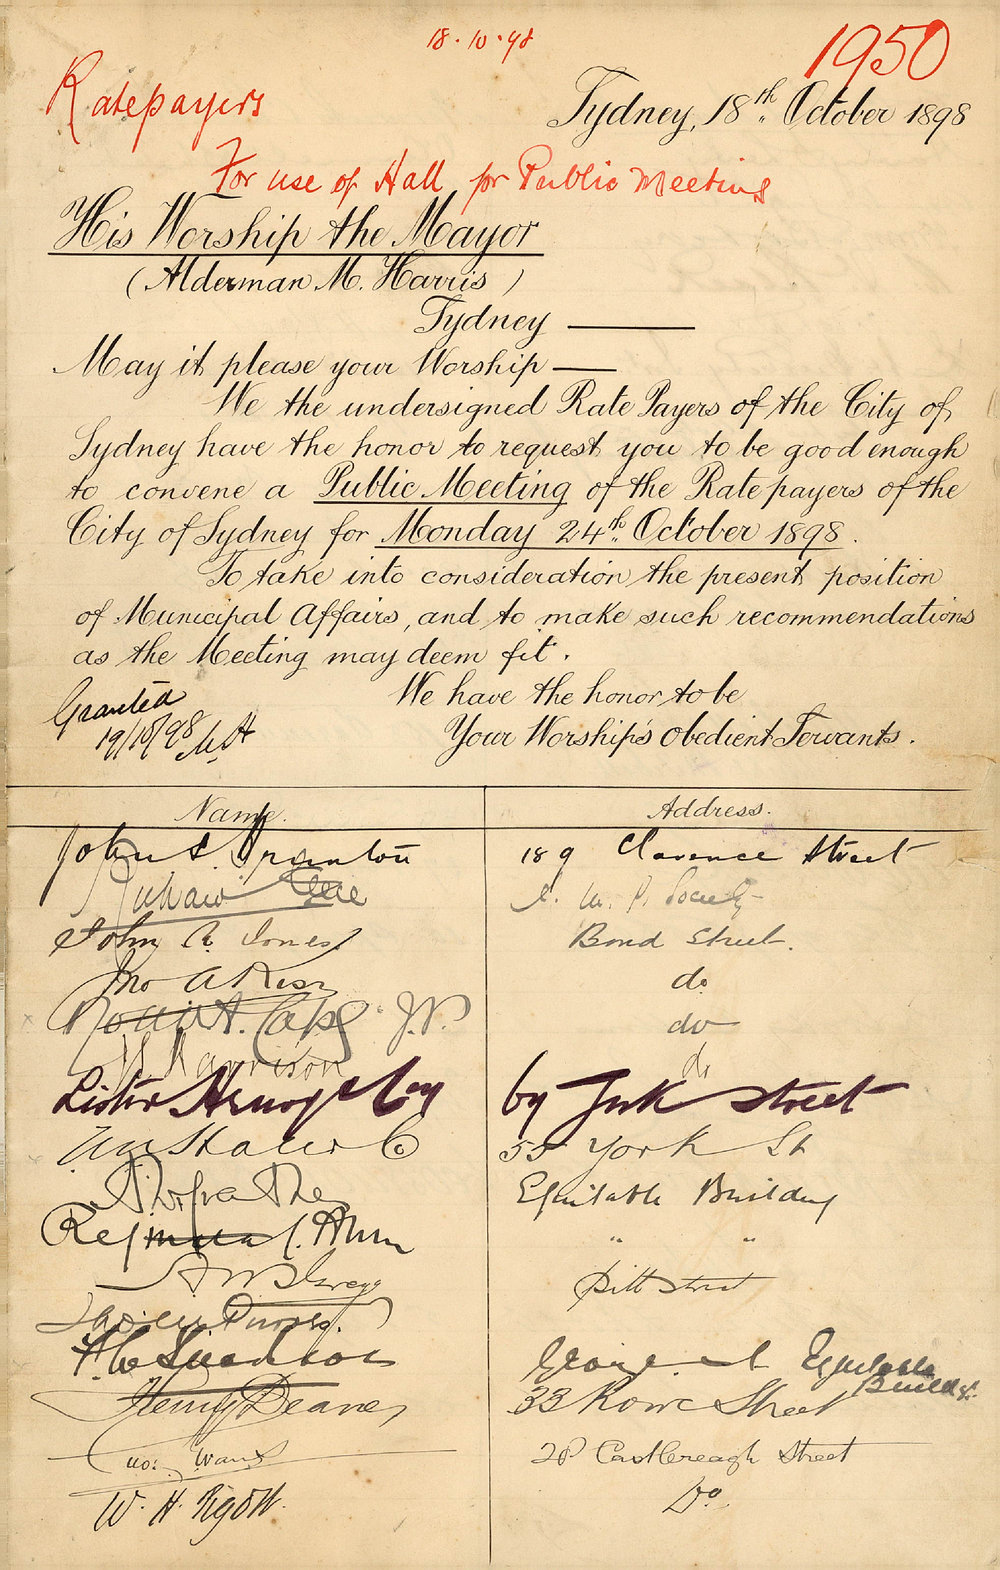 18.10.98
1950
Ratepayers
Sydney, 18th October 1898
For use of Hall for Public Meeting
His Worship the Mayor
(Alderman M. Harris)
Sydney
May it please your Worship
We the undersigned Rate Payers of the City of
Sydney have the honor to request you to be good enough
to convene a Public Meeting of the Rate payers of the
City of Sydney for Monday 24th October 1898.
To take into consideration the present position
of Municipal Affairs, and to make such recommendations
as the Meeting may deem fit.
Granted
19/10/98 M.H
We have the honor to be
Your Worship's Obedient Servants.
Name. Address.
John 189 Clarence Street
Society
John Jones Bond Street.
Jno A do
J.P. do
Harrison do
by York Street
& Co 55 York St
Equitable Building
" "
Pitt Street
George St Equitable Buildgs.
Henry Deane 33 Rowe Street
Castlereagh Street
W. H. Pigott. Do